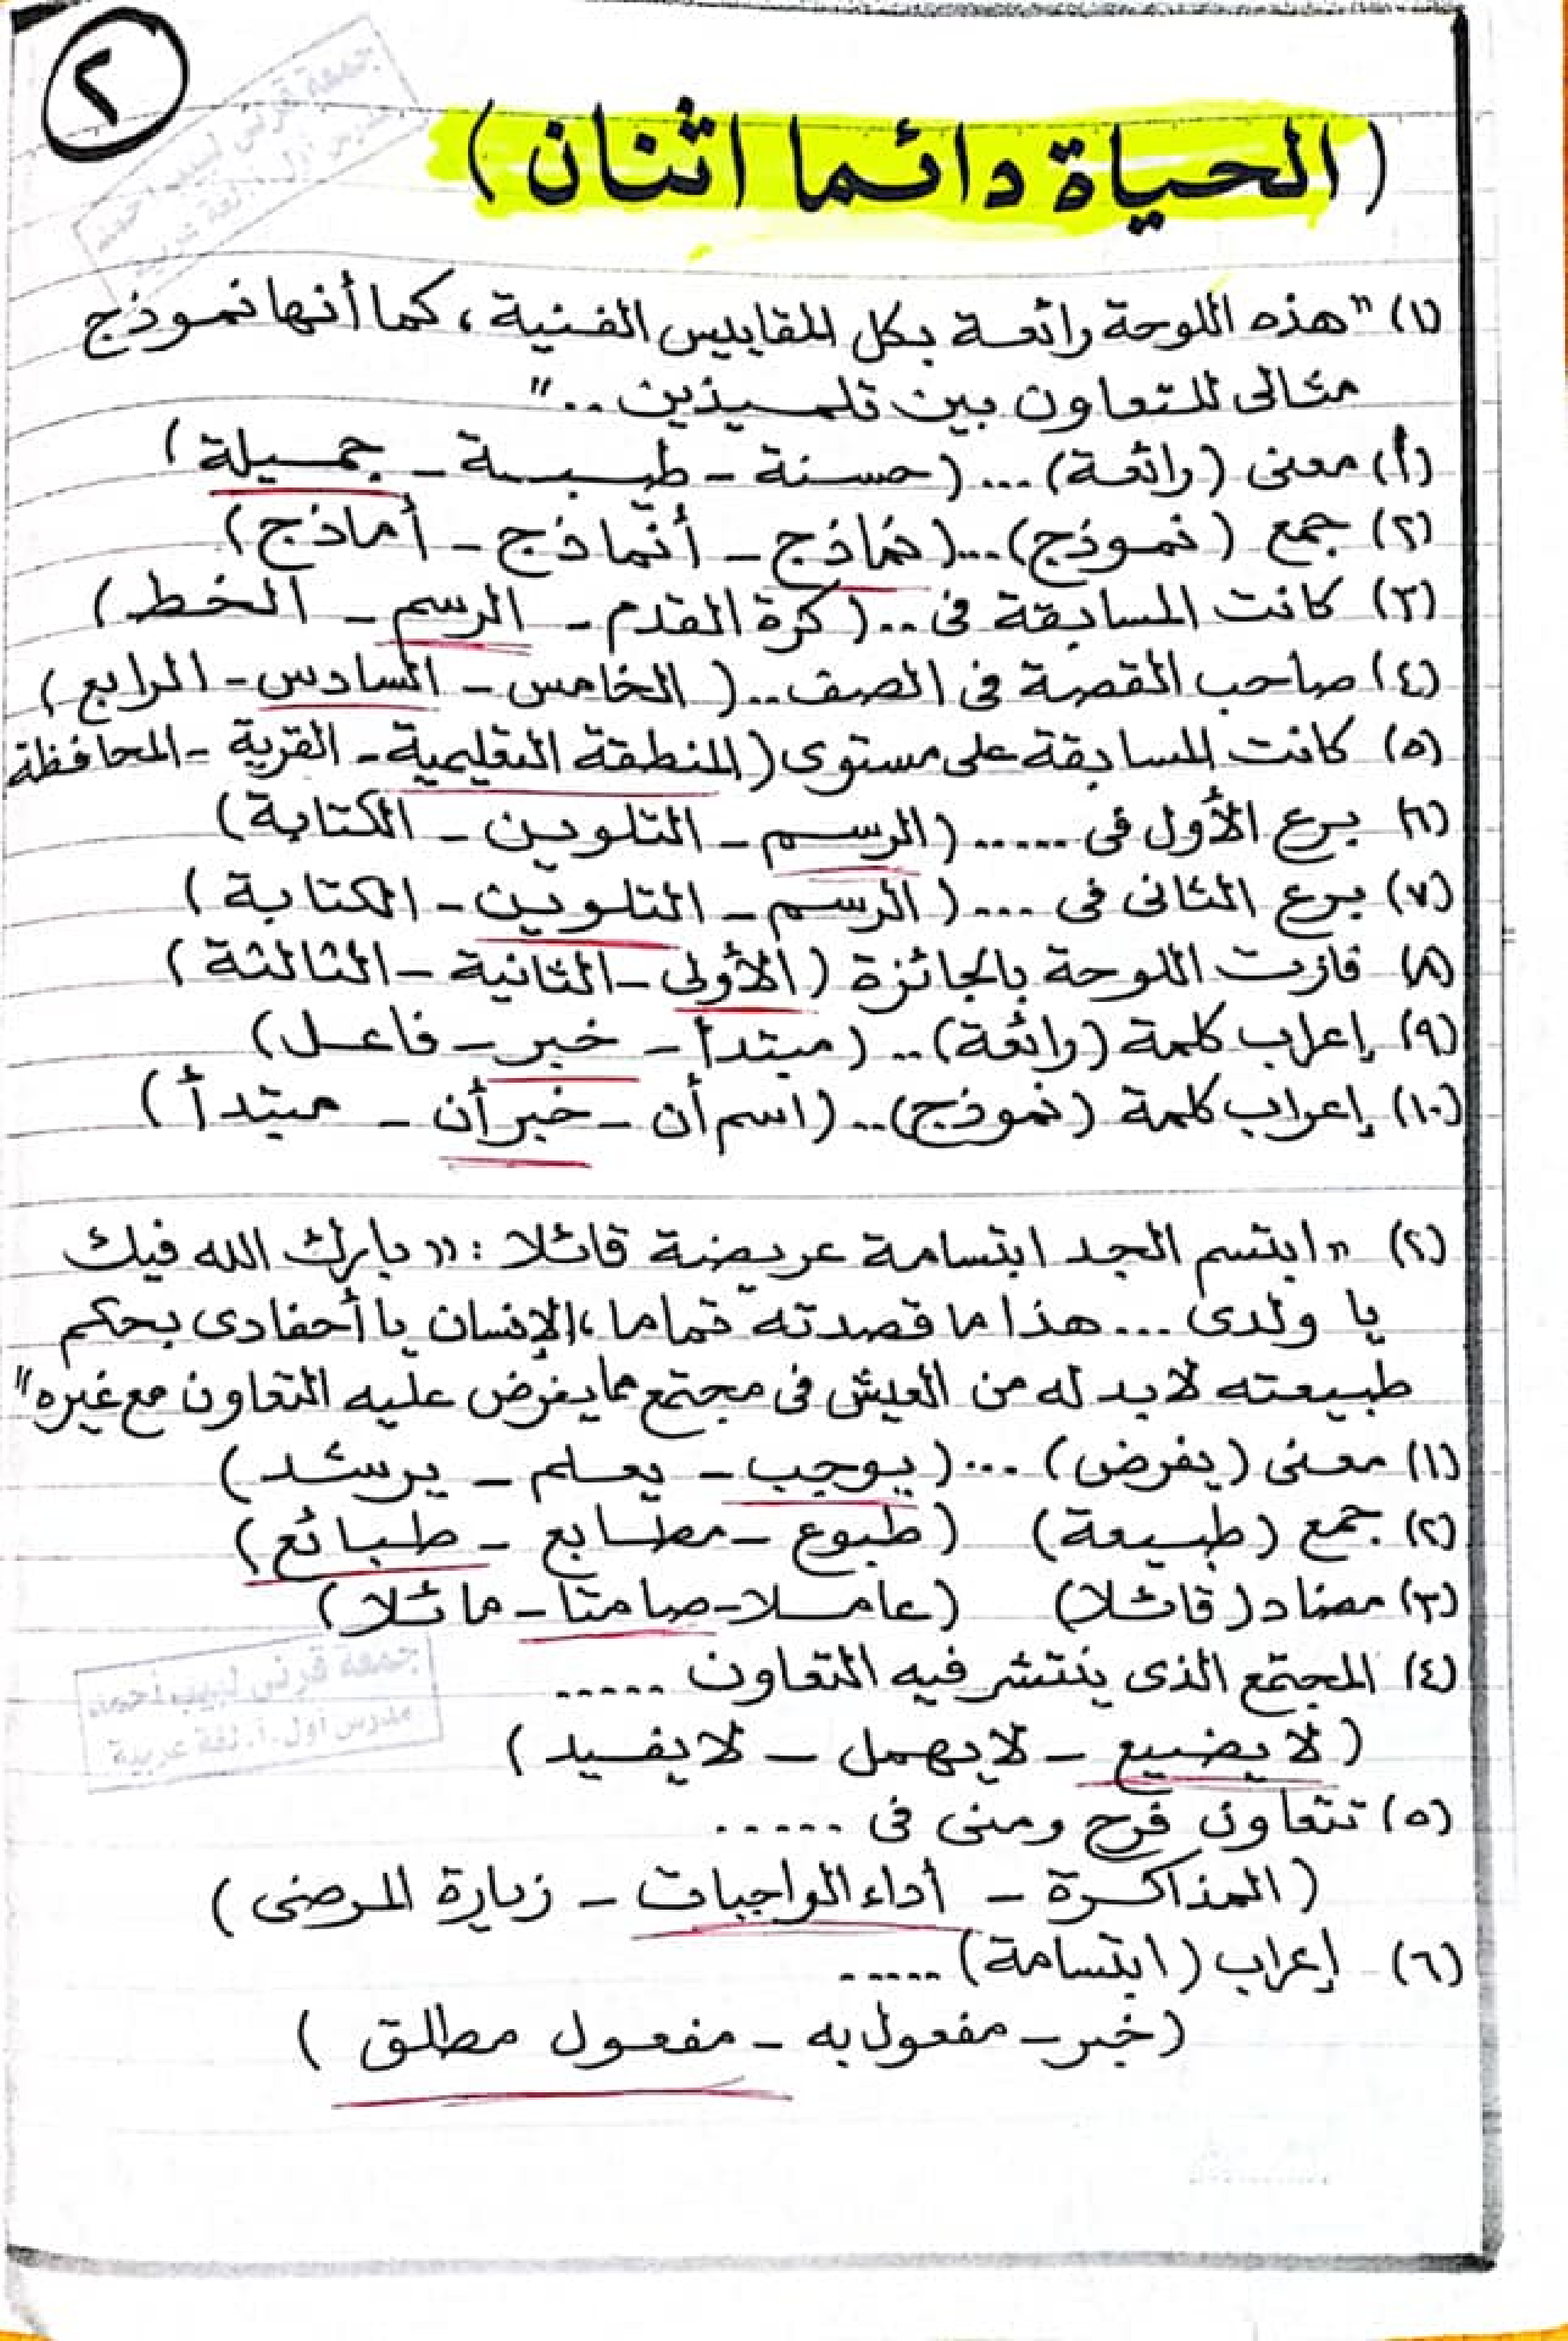 ٢
جمعة قرني لبيب أحمد
مدرس أول أ. لغة عربية
(الحياة دائما اثنان)
(١) "هذه اللوحة رائعة بكل المقاييس الفنية ، كما أنها نموذج
مثالى للتعاون بين تلميذين .."
(أ) معنى (رائعة) ... (حسنة - طيبة - جميلة)
(٢) جمع (نموذج) ... (نماذج - أنماذج - أماذج)
(٣) كانت المسابقة فى .. (كرة القدم - الرسم - الخط)
(٤) صاحب القصة فى الصف .. (الخامس - السادس - الرابع)
(٥) كانت المسابقة على مستوى (المنطقة التعليمية - القرية - المحافظة
(٦) برع الأول فى ...... (الرسم - التلوين - الكتابة)
(٧) برع الثانى فى .... (الرسم - التلوين - الكتابة)
(٨) فازت اللوحة بالجائزة (الأولى - الثانية - الثالثة)
(٩) إعراب كلمة (رائعة) .. (مبتدأ - خبر - فاعل)
(١٠) إعراب كلمة (نموذج) .. (اسم أن - خبر أن - مبتدأ)
(٢) "ابتسم الجد ابتسامة عريضة قائلا : "بارك الله فيك
يا ولدى ... هذا ما قصدته تماما ، الإنسان يا أحفادى بحكم
طبيعته لابد له من العيش فى مجتمع مما يفرض عليه التعاون مع غيره"
(١) معنى (يفرض) ... (يوجب - يعلم - يرشد)
(٢) جمع (طبيعة) (طبوع - مطابع - طبائع)
(٣) مضاد (قائلا) (عاملا - صامتا - مائلا)
(٤) المجتمع الذى ينتشر فيه التعاون .....
(لا يضيع - لا يهمل - لا يفيد)
(٥) تتعاون فرح ومنى فى ......
(المذاكرة - أداء الواجبات - زيارة المرضى)
(٦) إعراب (ابتسامة) .....
(خبر - مفعول به - مفعول مطلق)
جمعة قرني لبيب أحمد
مدرس أول أ. لغة عربية